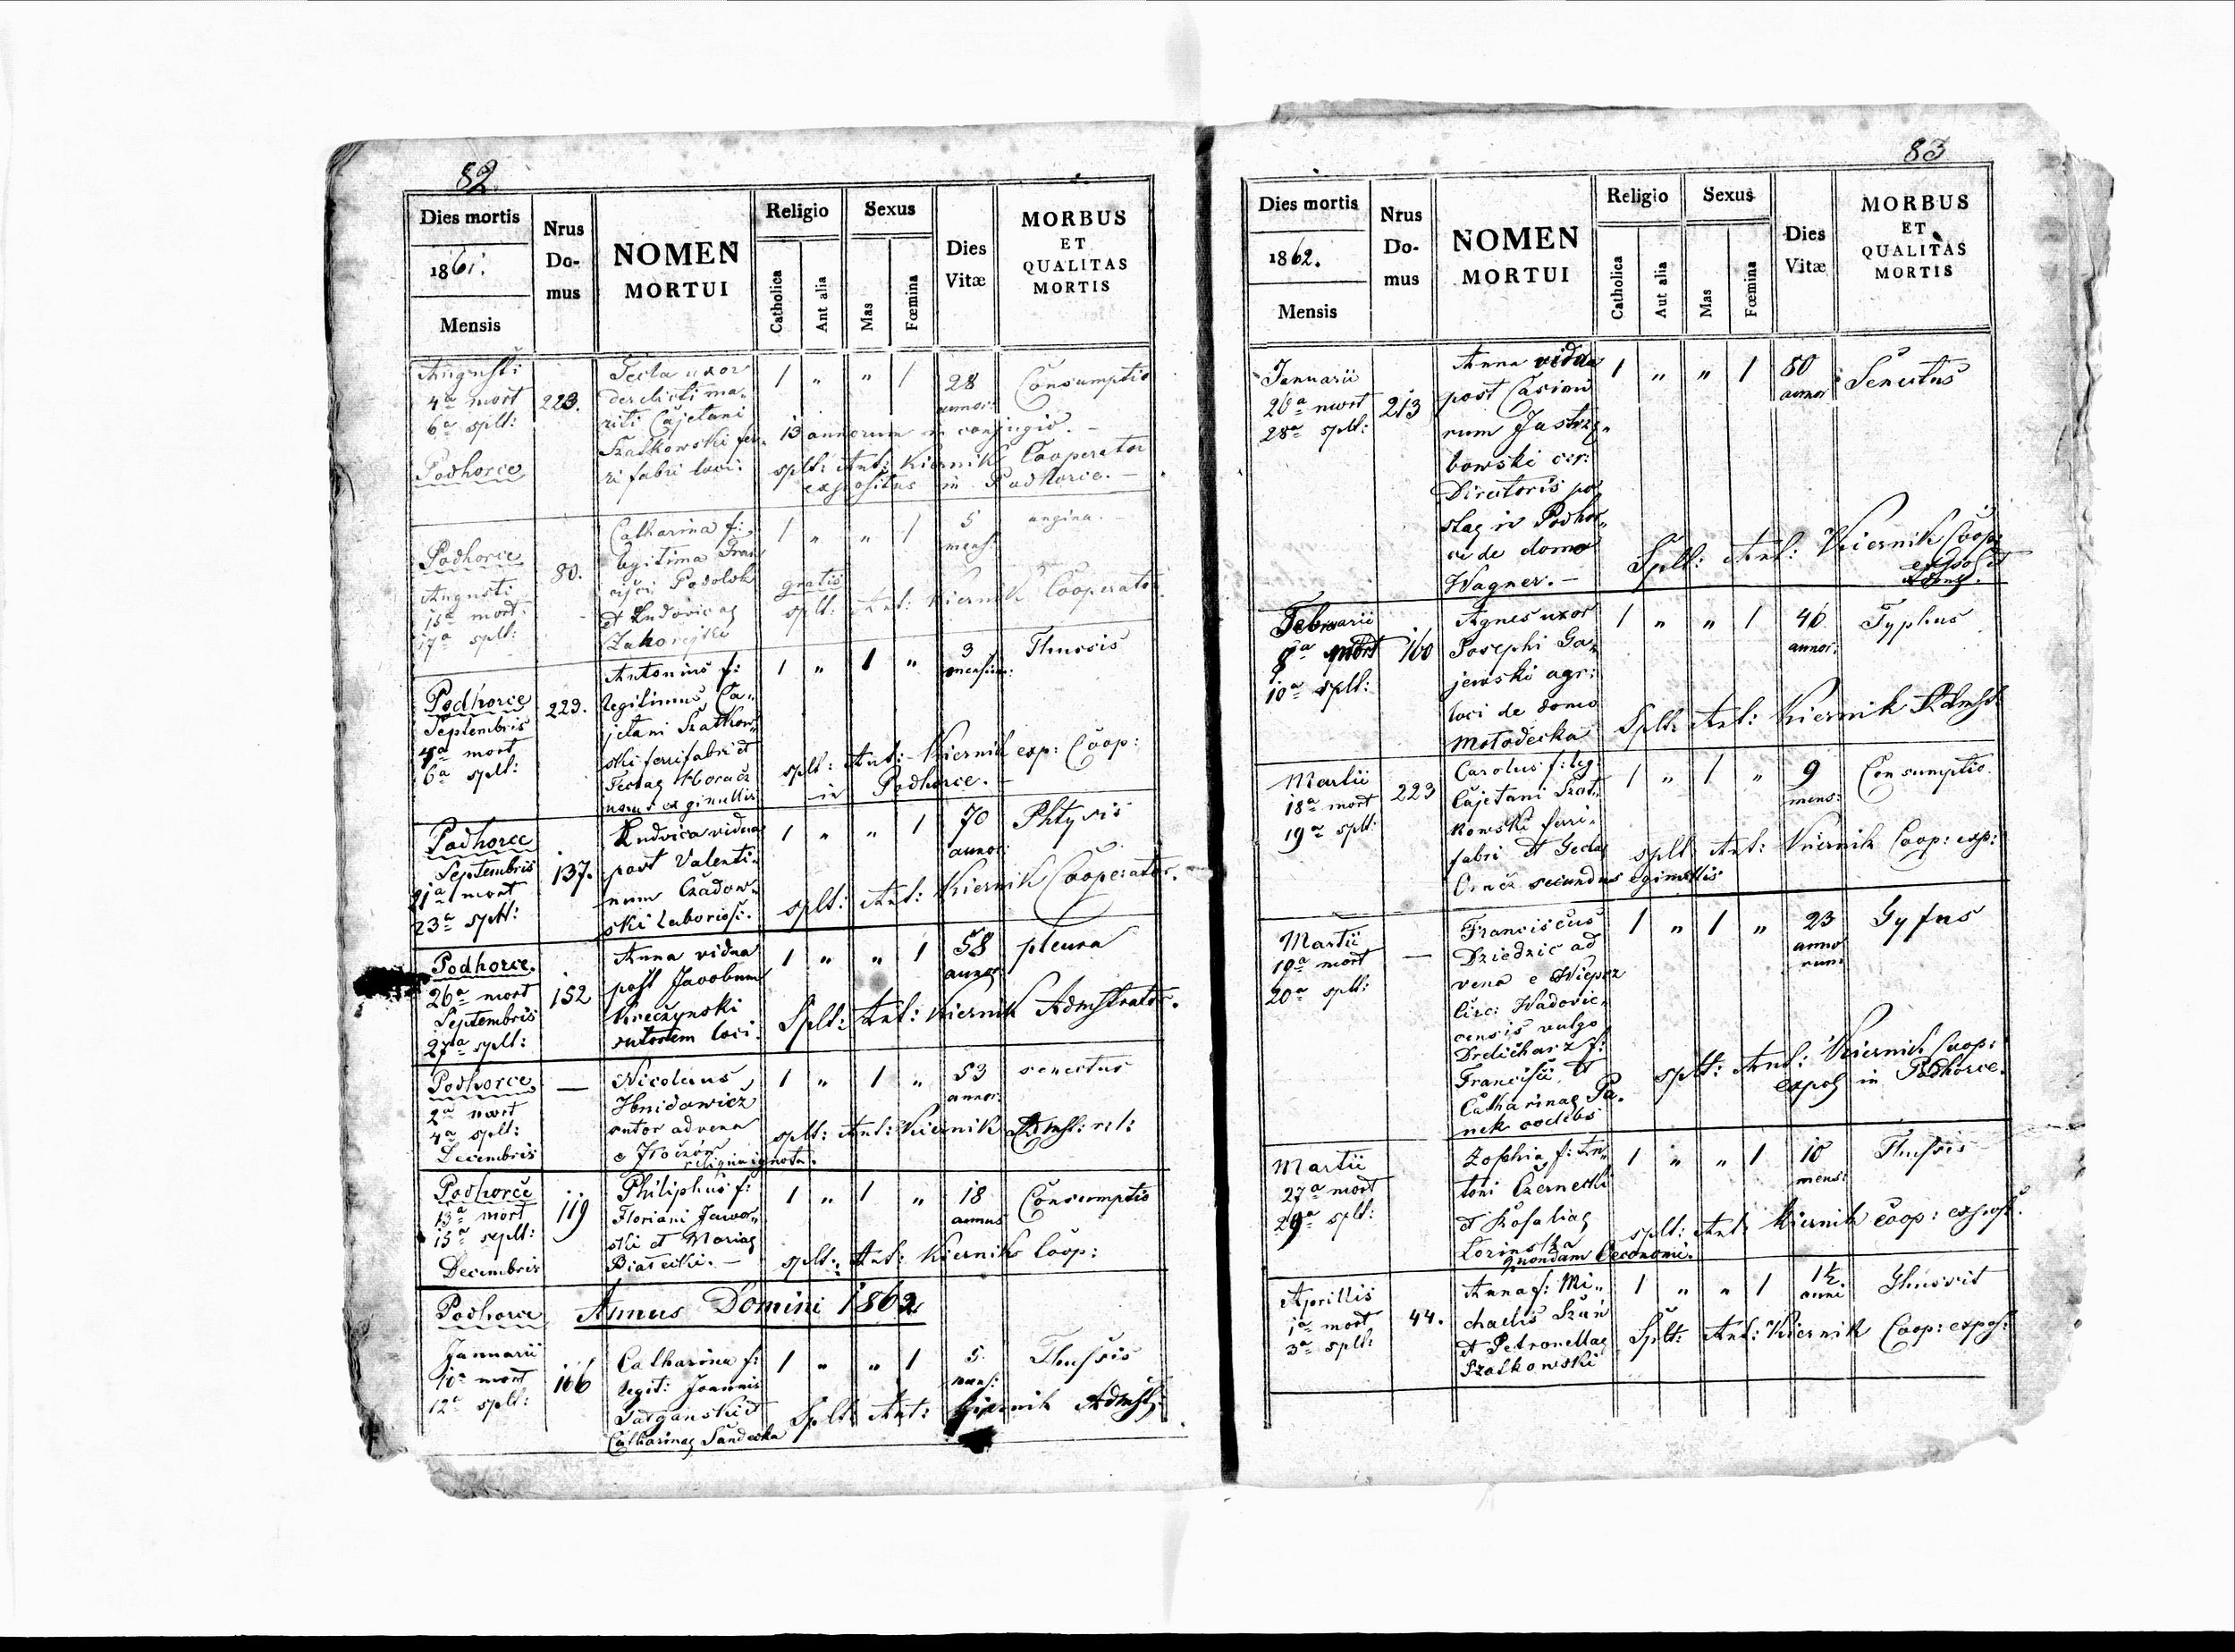 82
Dies mortis
1861.
Mensis
Nrus
Do-
mus
NOMEN
MORTUI
Religio
Catholica
Ant alia
Sexus
Mas
Fœmina
Dies
Vitæ
MORBUS
ET
QUALITAS
MORTIS
Augusti
4a mort
6a splt:
Podhorce
223.
Tecla uxor
derelicti ma„
riti Cajetani
Szatkowski fer„
ri fabri loci.
1 „ „ 1
28
annor:
Consumptio
13 annorum in conjugio. –
splt: Ant: Kiernik Cooperator
expositus in Podhorce. –
Podhorce
Augusti
15a mort:
17a splt:
80.
Catharina f:
legitima Fran
et Ludovicae
1 „ „ 1
5
mens:
angina.
gratis
splt: Ant: Kiernik Cooperator
Podhorce
Septembris
4a mort
6a splt:
223.
Antonius f:
legitimus Ca„
jetani Szatkow„
ski ferrifabri et
Teclae Horacz
unus ex gimellis
1 „ 1 „
3
mensium:
Thussis
splt: Ant: Kiernik exp: Coop:
in Podhorce. –
Podhorce
Septembris
21a mort
23a splt:
137.
Ludvica vidua
post Valenti„
num Czadow„
ski laboriosi.
1 „ „ 1
70
annor:
Phtysis
splt: Ant: Kiernik Cooperator.
Podhorce.
26a mort
Septembris
27a splt:
152
Anna vidua
post Jacobum
Kreczynski
sutorem loci.
1 „ „ 1
58
annor
pleura
Splt: Ant: Kiernik Admstrator.
Podhorce
2a mort
4a splt:
Decembris
—
Nicolaus
Hnidowicz
sutor advena
e Złoczów
religio ignota.
1 „ 1 „
53
annor:
senectus
splt: Ant: Kiernik Admst:
Podhorce
13a mort
15a seplt:
Decembris
119
Philiphus f:
Floriani Jawor„
ski et Mariae
Białecki. –
1 „ 1 „
18
annus
Consumptio
splt: Ant: Kiernik Coop:
Podhorce
Annus Domini 1862
Januarii
10a mort
12a splt:
166
Catharina f:
legit: Joannis
Gargański et
Catharinae Sandecka
1 „ „ 1
5
mens:
Thussis
Splt: Ant: Kiernik Admst:
83
Dies mortis
1862.
Mensis
Nrus
Do-
mus
NOMEN
MORTUI
Religio
Catholica
Aut alia
Sexus
Mas
Fœmina
Dies
Vitæ
MORBUS
ET
QUALITAS
MORTIS
Januarii
26a mort
28a splt:
213
Anna vidua
post Casimi
rum Jastrzę„
bowski cer:
Directoris po
stae in Podhor„
ce de domo
Wagner. –
1 „ „ 1
80
annor
Senectus
Splt: Ant: Kiernik Coop:
Februarii
8a mort
10a splt:
160
Agnes uxor
Josephi Ga„
jewski agr:
loci de domo
Mołodecka
1 „ „ 1
46
annor:
Typhus
Splt: Ant: Kiernik Admst:
Martii
18a mort
19a splt:
223
Carolus f: leg:
Cajetani Szat„
kowski ferri„
fabri et Teclae
Oracz secundus e gimellis
1 „ 1 „
9
mens:
Consumptio.
splt: Ant: Kiernik Coop: exp:
Martii
19a mort
20a splt:
—
Franciscus
Dziedzic ad
vena e Wieprz
circ: Wadovic„
censis vulgo
Drelicharz f:
Francisci et
Catharinae Pa„
nek
1 „ 1 „
23
anno
rum
Tyfus
splt: Ant: Kiernik Coop:
expos in Podhorce.
Martii
27a mort
29a splt:
Zophia f: An„
toni Czernecki
et Rosaliae
Lorinska
quondam Oeconomi.
1 „ „ 1
10
mens:
Thussis
splt: Ant: Kiernik Coop: expos:
Aprillis
1a mort
3a splt:
44.
Anna f: Mi„
chaelis Szań
et Petronellae
Szatkowski
1 „ „ 1
1½
anni
Thussis
Splt: Ant: Kiernik Coop: expos: